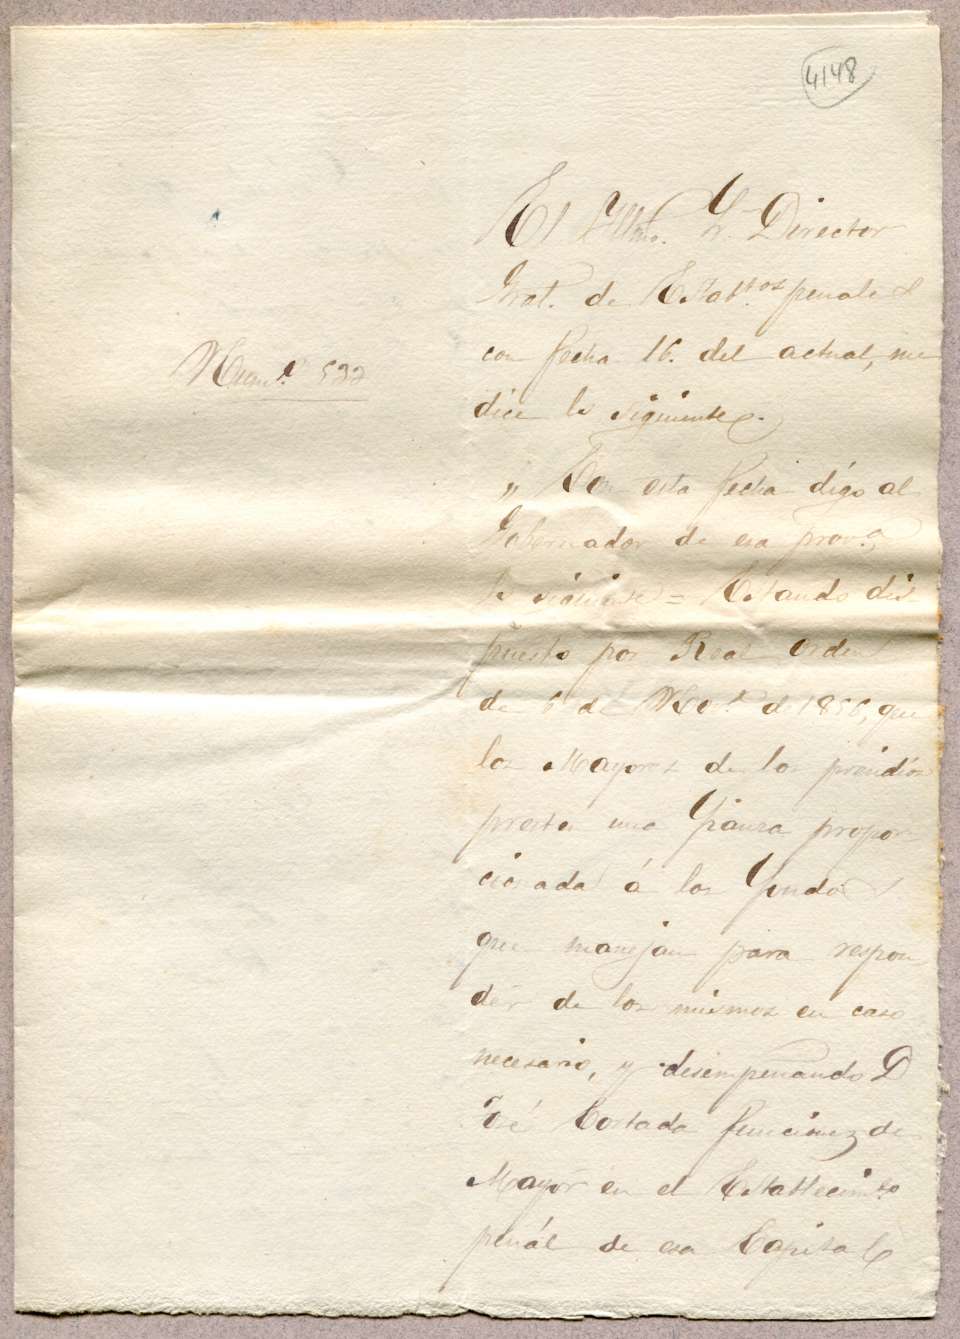 4148
El Yllmo. Sr. Director
Gral. de Estabtos. penales
con fecha 16. del actual, me
dice lo siguiente.
Numo. 532
" Con esta fecha digo al
Gobernador de esa prova.
lo siguiente = Estando dis-
puesto por Real orden
de 6 de Nove. de 1856, que
los Mayores de los presidios
presten una fianza propor-
cionada á los fondos
que manejan para respon
der de los mismos en caso
necesario, y desempeñando D
José Cortada funciones de
Mayor en el Establecimto
penál de esa Capital